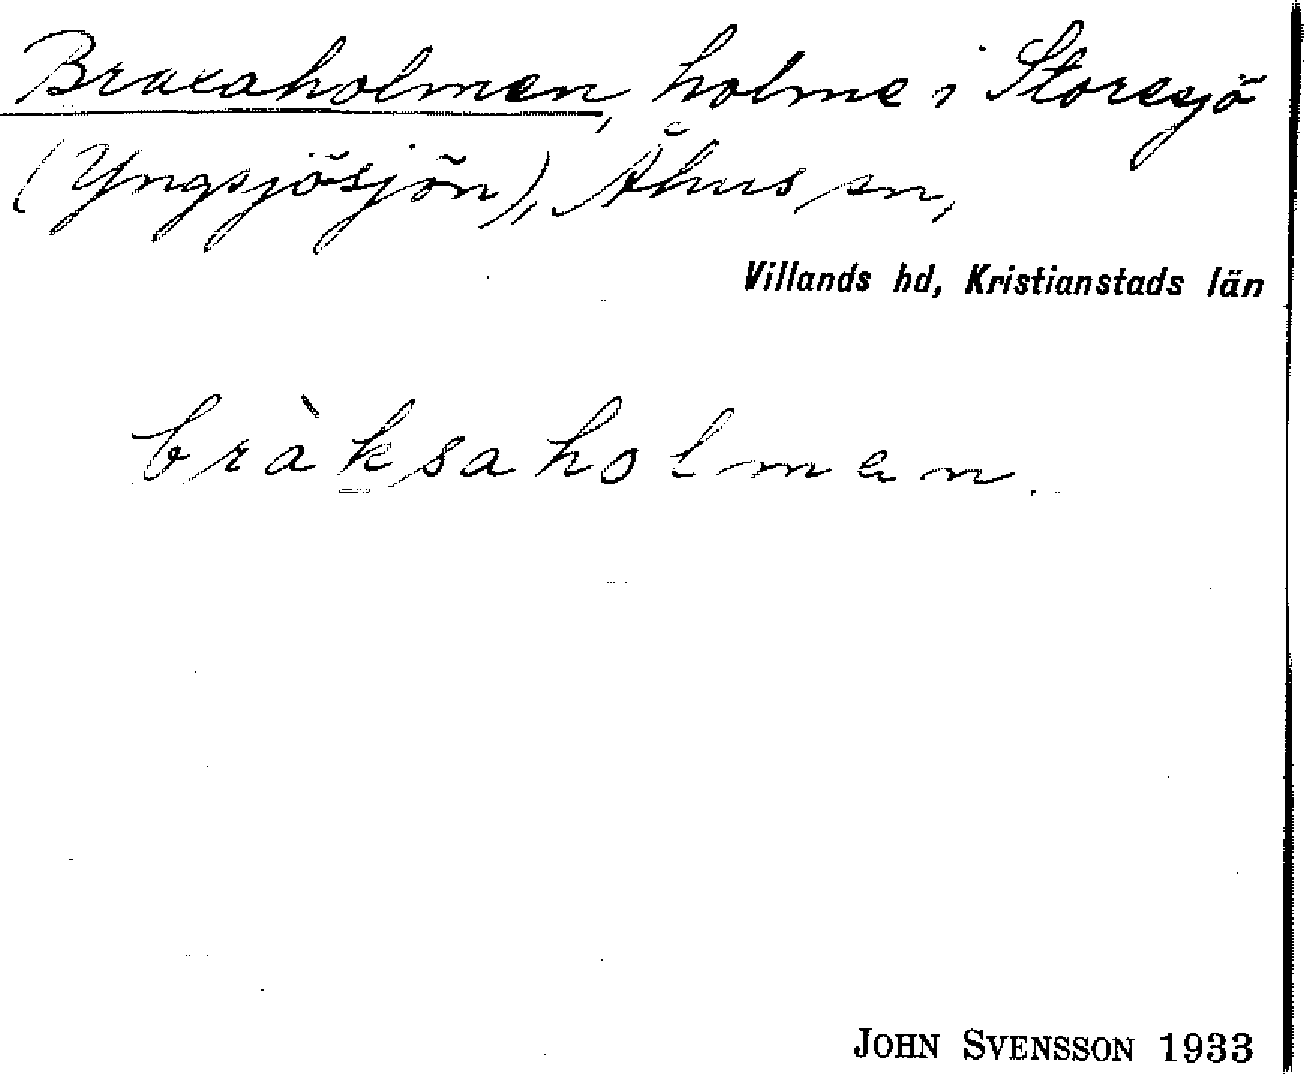 Braxaholmen, holme i Storesjö
(Yngsjösjön), Åhus sn,
Villands hd, Kristianstads län
bràksaholmen.
JOHN SVENSSON 1933